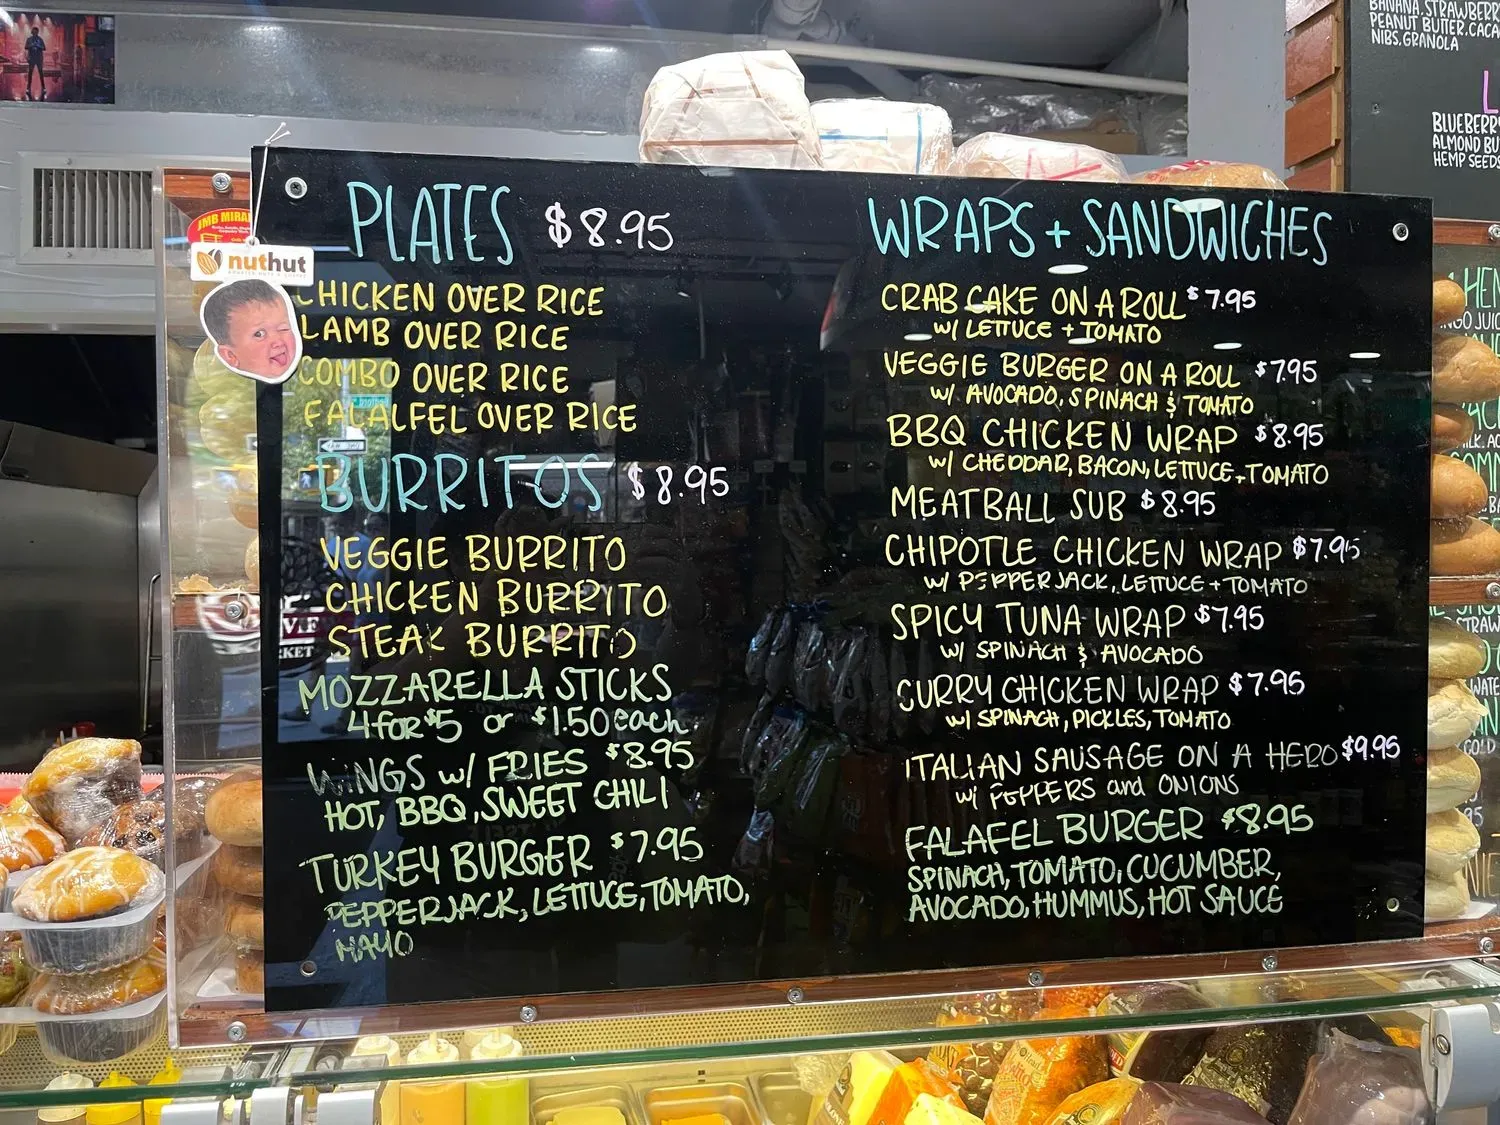 PLATES $8.95
CHICKEN OVER RICE
LAMB OVER RICE
COMBO OVER RICE
FALALFEL OVER RICE
BURRITOS $8.95
VEGGIE BURRITO
CHICKEN BURRITO
STEAK BURRITO
MOZZARELLA STICKS
4 for $5 or $1.50 each.
WINGS w/ FRIES $8.95
HOT, BBQ, SWEET CHILI
TURKEY BURGER $7.95
PEPPERJACK, LETTUCE, TOMATO,
MAYO
WRAPS + SANDWICHES
CRAB CAKE ON A ROLL $7.95
w/ LETTUCE + TOMATO
VEGGIE BURGER ON A ROLL $7.95
w/ AVOCADO, SPINACH & TOMATO
BBQ CHICKEN WRAP $8.95
w/ CHEDDAR, BACON, LETTUCE + TOMATO
MEATBALL SUB $8.95
CHIPOTLE CHICKEN WRAP $7.95
w/ PEPPERJACK, LETTUCE + TOMATO
SPICY TUNA WRAP $7.95
w/ SPINACH & AVOCADO
CURRY CHICKEN WRAP $7.95
w/ SPINACH, PICKLES, TOMATO
ITALIAN SAUSAGE ON A HERO $9.95
w/ PEPPERS and ONIONS
FALAFEL BURGER $8.95
SPINACH, TOMATO, CUCUMBER,
AVOCADO, HUMMUS, HOT SAUCE
JMB
nuthut
BANANA, STRAWBERR
PEANUT BUTTER, CACA
NIBS, GRANOLA
BLUEBERR
ALMOND BU
HEMP SEEDS